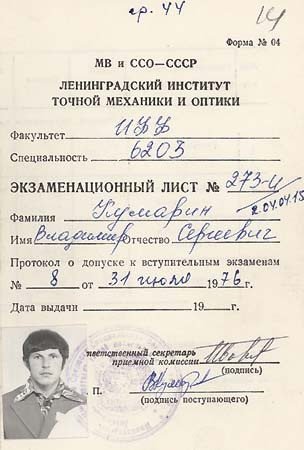 гр. 44
14
Форма № 04
МВ и ССО—СССР
ЛЕНИНГРАДСКИЙ ИНСТИТУТ
ТОЧНОЙ МЕХАНИКИ И ОПТИКИ
Факультет ИФФ
Специальность 6203
ЭКЗАМЕНАЦИОННЫЙ ЛИСТ № 273-и
2.04.04.15
Фамилия Кумарин
Имя Владимир Отчество Сергеевич
Протокол о допуске к вступительным экзаменам
№ 8 от 31 июля 1976 г.
Дата выдачи 19 г.
ответственный секретарь
приемной комиссии
(подпись)
П.
(подпись поступающего)